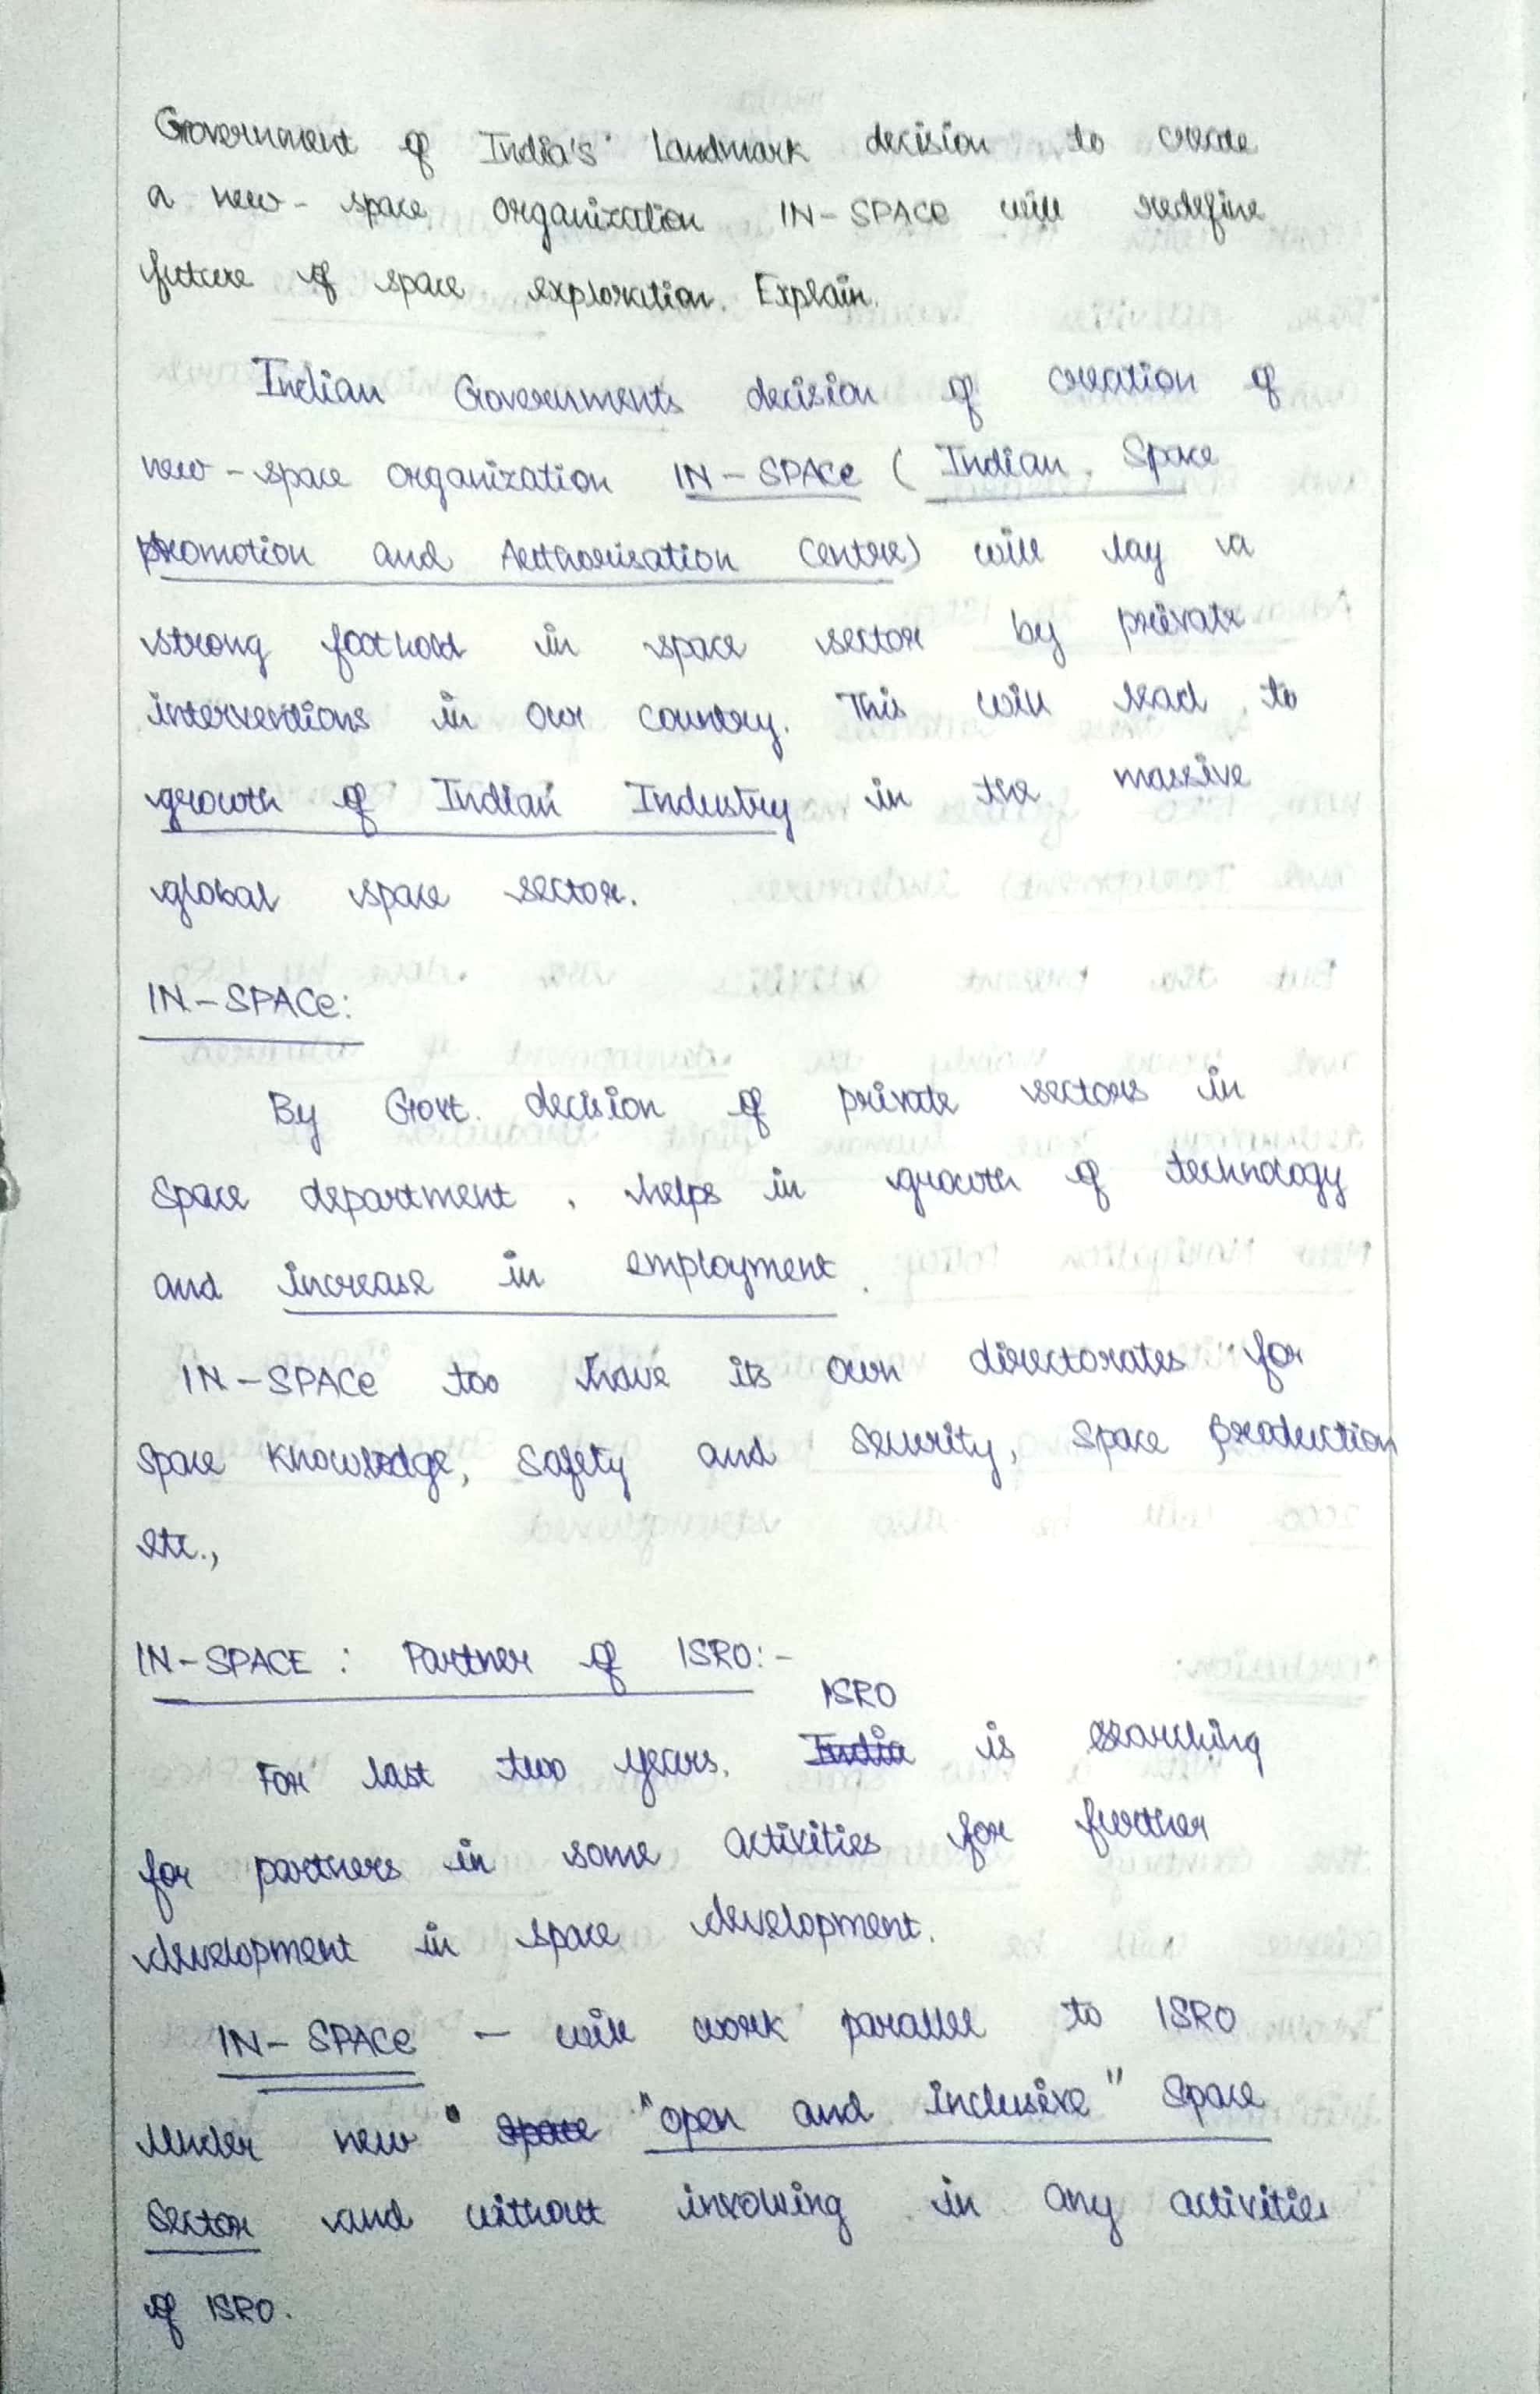 Government of India's Landmark decision to create
a new-space organization IN-SPACe will redefine
future of space exploration. Explain.
Indian Governments decision of creation of
new-space organization IN-SPACe (Indian Space
promotion and Authorisation Centre) will lay a
strong foothold in space sector by private
interventions in our country. This will lead to
growth of Indian Industry in the massive
global space sector.
IN-SPACe:
By Govt. decision of private sectors in
space department, helps in growth of technology
and increase in employment.
IN-SPACe too have its own directorates for
space knowledge, safety and security, space production
etc.,
IN-SPACE: Partner of ISRO:-
ISRO
For last two years, India is searching
for partners in some activities for further
development in space development.
IN-SPACe - will work parallel to ISRO
under new space "open and inclusive" space
sector and without involving in any activities
of ISRO.